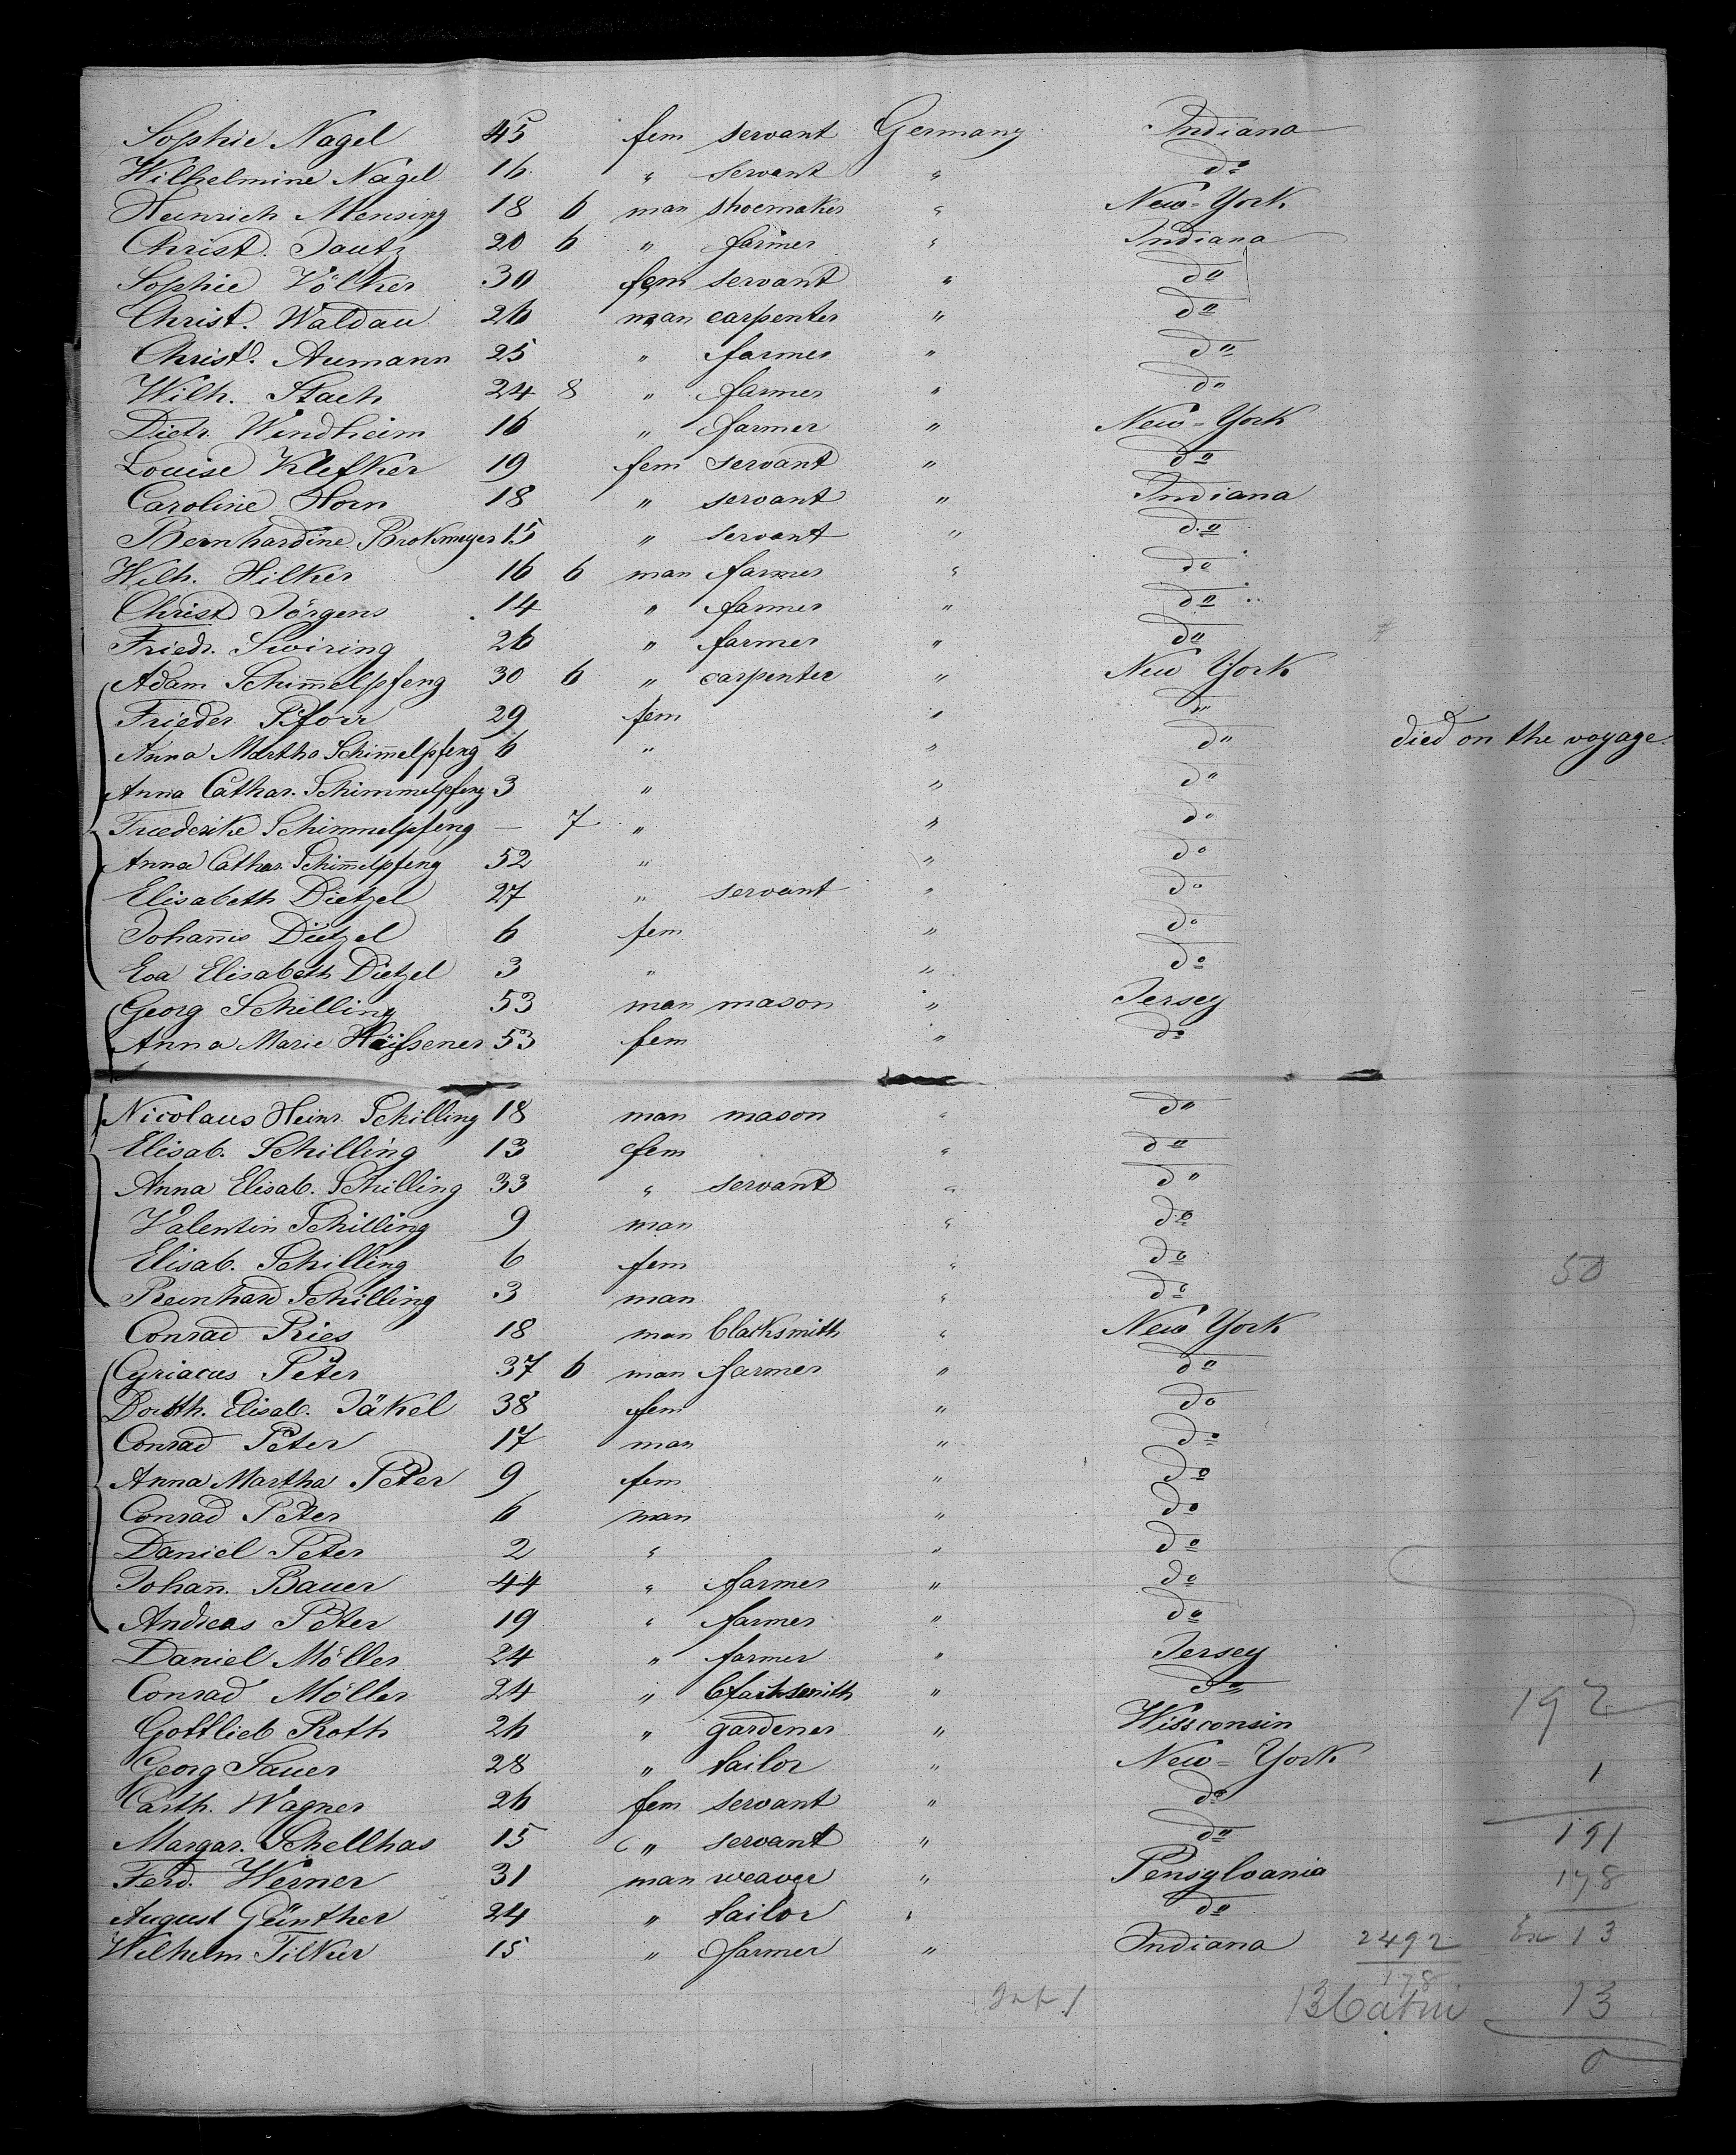 Sophie Nagel 45 fem servant Germany Indiana
Wilhelmine Nagel 16 " servant " do
Heinrich Mensing 18 6 man shoemaker " New-York
Christ. Tautz 20 6 " farmer " Indiana
Sophie Völker 30 fem servant " do
Christ. Waldau 26 man carpenter " do
Christ. Aumann 25 " farmer " do
Wilh. Stach 24 8 " farmer " do
Dietr. Windheim 16 " farmer " New-York
Louise Klefker 19 fem servant " do
Caroline Horn 18 " servant " Indiana
Bernhardine Brokmeyer 15 " servant " do
Wilh. Hilker 16 6 man farmer " do
Christ Jörgens 14 " farmer " do
Friedr. Swiring 26 " farmer " do
Adam Schimmelpfeng 30 6 " carpenter " New York
Frieder. Pforr 29 fem " do
Anna Martha Schimmelpfeng 6 " " do died on the voyage.
Anna Cathar. Schimmelpfeng 3 " " do
Friederike Schimmelpfeng — 7 " " do
Anna Cathar. Schimmelpfeng 52 " " do
Elisabeth Dietzel 27 " servant " do
Johannis Dietzel 6 fem " do
Eva Elisabeth Dietzel 3 " " do
Georg Schilling 53 man mason " Jersey
Anna Marie 53 fem " do
Nicolaus Heinr. Schilling 18 man mason " do
Elisab. Schilling 13 fem " do
Anna Elisab. Schilling 33 " servant " do
Valentin Schilling 9 man " do
Elisab. Schilling 6 fem " do 50
Reinhard Schilling 3 man " do
Conrad Ries 18 man blacksmith " New York
Cyriacus Peter 37 6 man farmer " do
Dorth. Elisab. Jäkel 38 fem " do
Conrad Peter 17 man " do
Anna Martha Peter 9 fem " do
Conrad Peter 6 man " do
Daniel Peter 2 " " do
Johann. Bauer 44 " farmer " do
Andreas Peter 19 " farmer " do
Daniel Möller 24 " farmer " Jersey
Conrad Möller 24 " blacksmith " do 192
Gottlieb Roth 26 " gardener " Wissconsin
Georg Sauer 28 " tailor " New-York 1
Carth. Wagner 26 fem servant " do
Margar. Schellhas 15 " servant " do 191
Ferd. Werner 31 man weaver " Pensylvania 178
August Günther 24 " tailor " do
Wilhelm Tilker 15 " farmer " Indiana 2492 13
178
Inf 1 13 Cabin 13
0